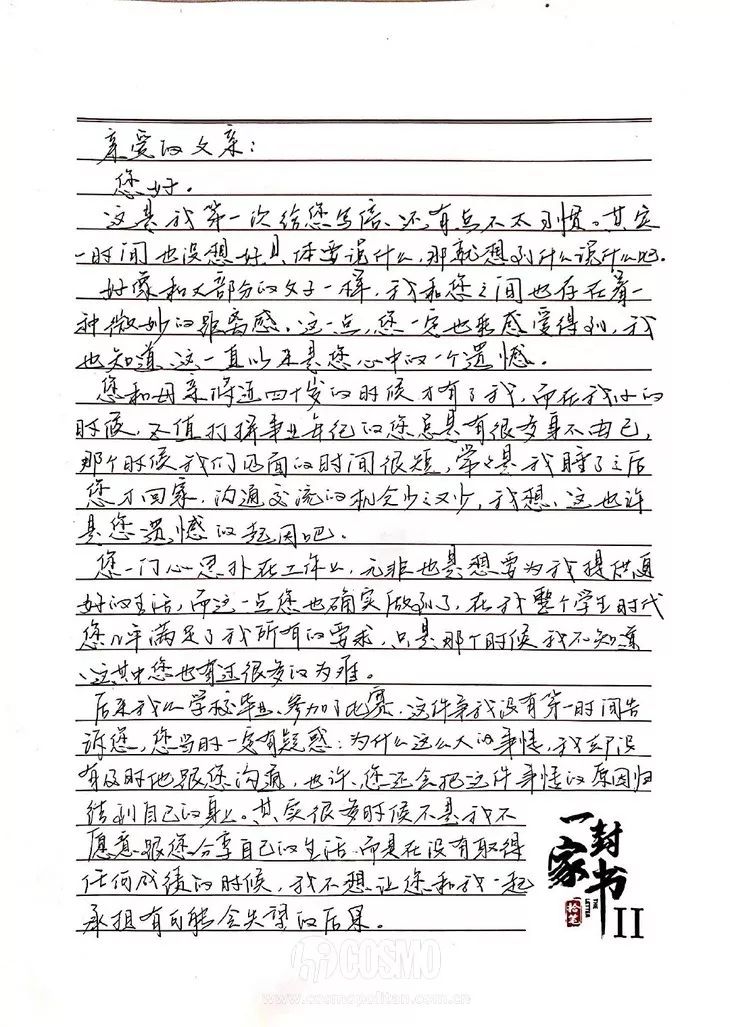 亲爱的父亲：
您好。
这是我第一次给您写信、还有点不太习惯。其实
一时间也没想好具体要说什么，那就想到什么说什么吧.
好像和大部分的父子一样，我和您之间也存在着一
种微妙的距离感。这一点，您一定也能感受得到，我
也知道这一直以来是您心中的一个遗憾。
您和母亲将近四十岁的时候才有了我，而在我小的
时候，正值打拼事业年纪的您总是有很多身不由己，
那个时候我们见面的时间很短，常常是我睡了之后
您才回家，沟通交流的机会少之又少，我想、这也许
是您遗憾的起因吧。
您一门心思扑在工作上，无非也是想要为我提供更
好的生活，而这一点您也确实做到了，在我整个学生时代
您几乎满足了我所有的要求，只是那个时候我不知道
这其中您也有过很多的为难。
后来我从学校毕业、参加了比赛，这件事我没有第一时间告
诉您，您当时一定有疑惑：为什么这么大的事情，我却没
有及时地跟您沟通，也许、您还会把这件事情的原因归
结到自己的身上。其实很多时候不是我不
愿意跟您分享自己的生活，而是在没有取得
任何成绩的时候，我不想让您和我一起
承担有可能会失望的后果。
一封家书
拾笔
THE LETTER
II
COSMO
www.cosmopolitan.com.cn